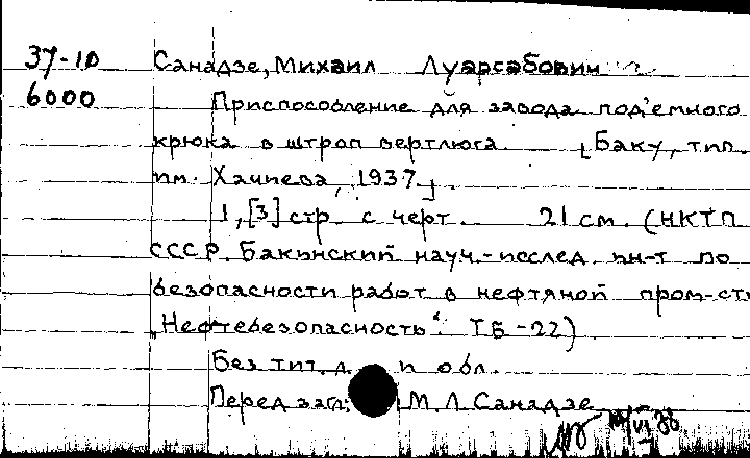 37-10 Санадзе, Михаил Луарсабович
6000 Приспособление для завода под'емного
крюка в штроп вертлюга. [Баку, тип.
им. Хачиева, 1937].
1, [3] стр. с черт. 21 см. (НКТП
СССР. Бакинский науч.-исслед. ин-т по
безопасности работ в нефтяной пром-сти
"Нефтебезопасность". ТБ-22)
Без тит. л. и обл.
Перед загл: М. Л. Санадзе